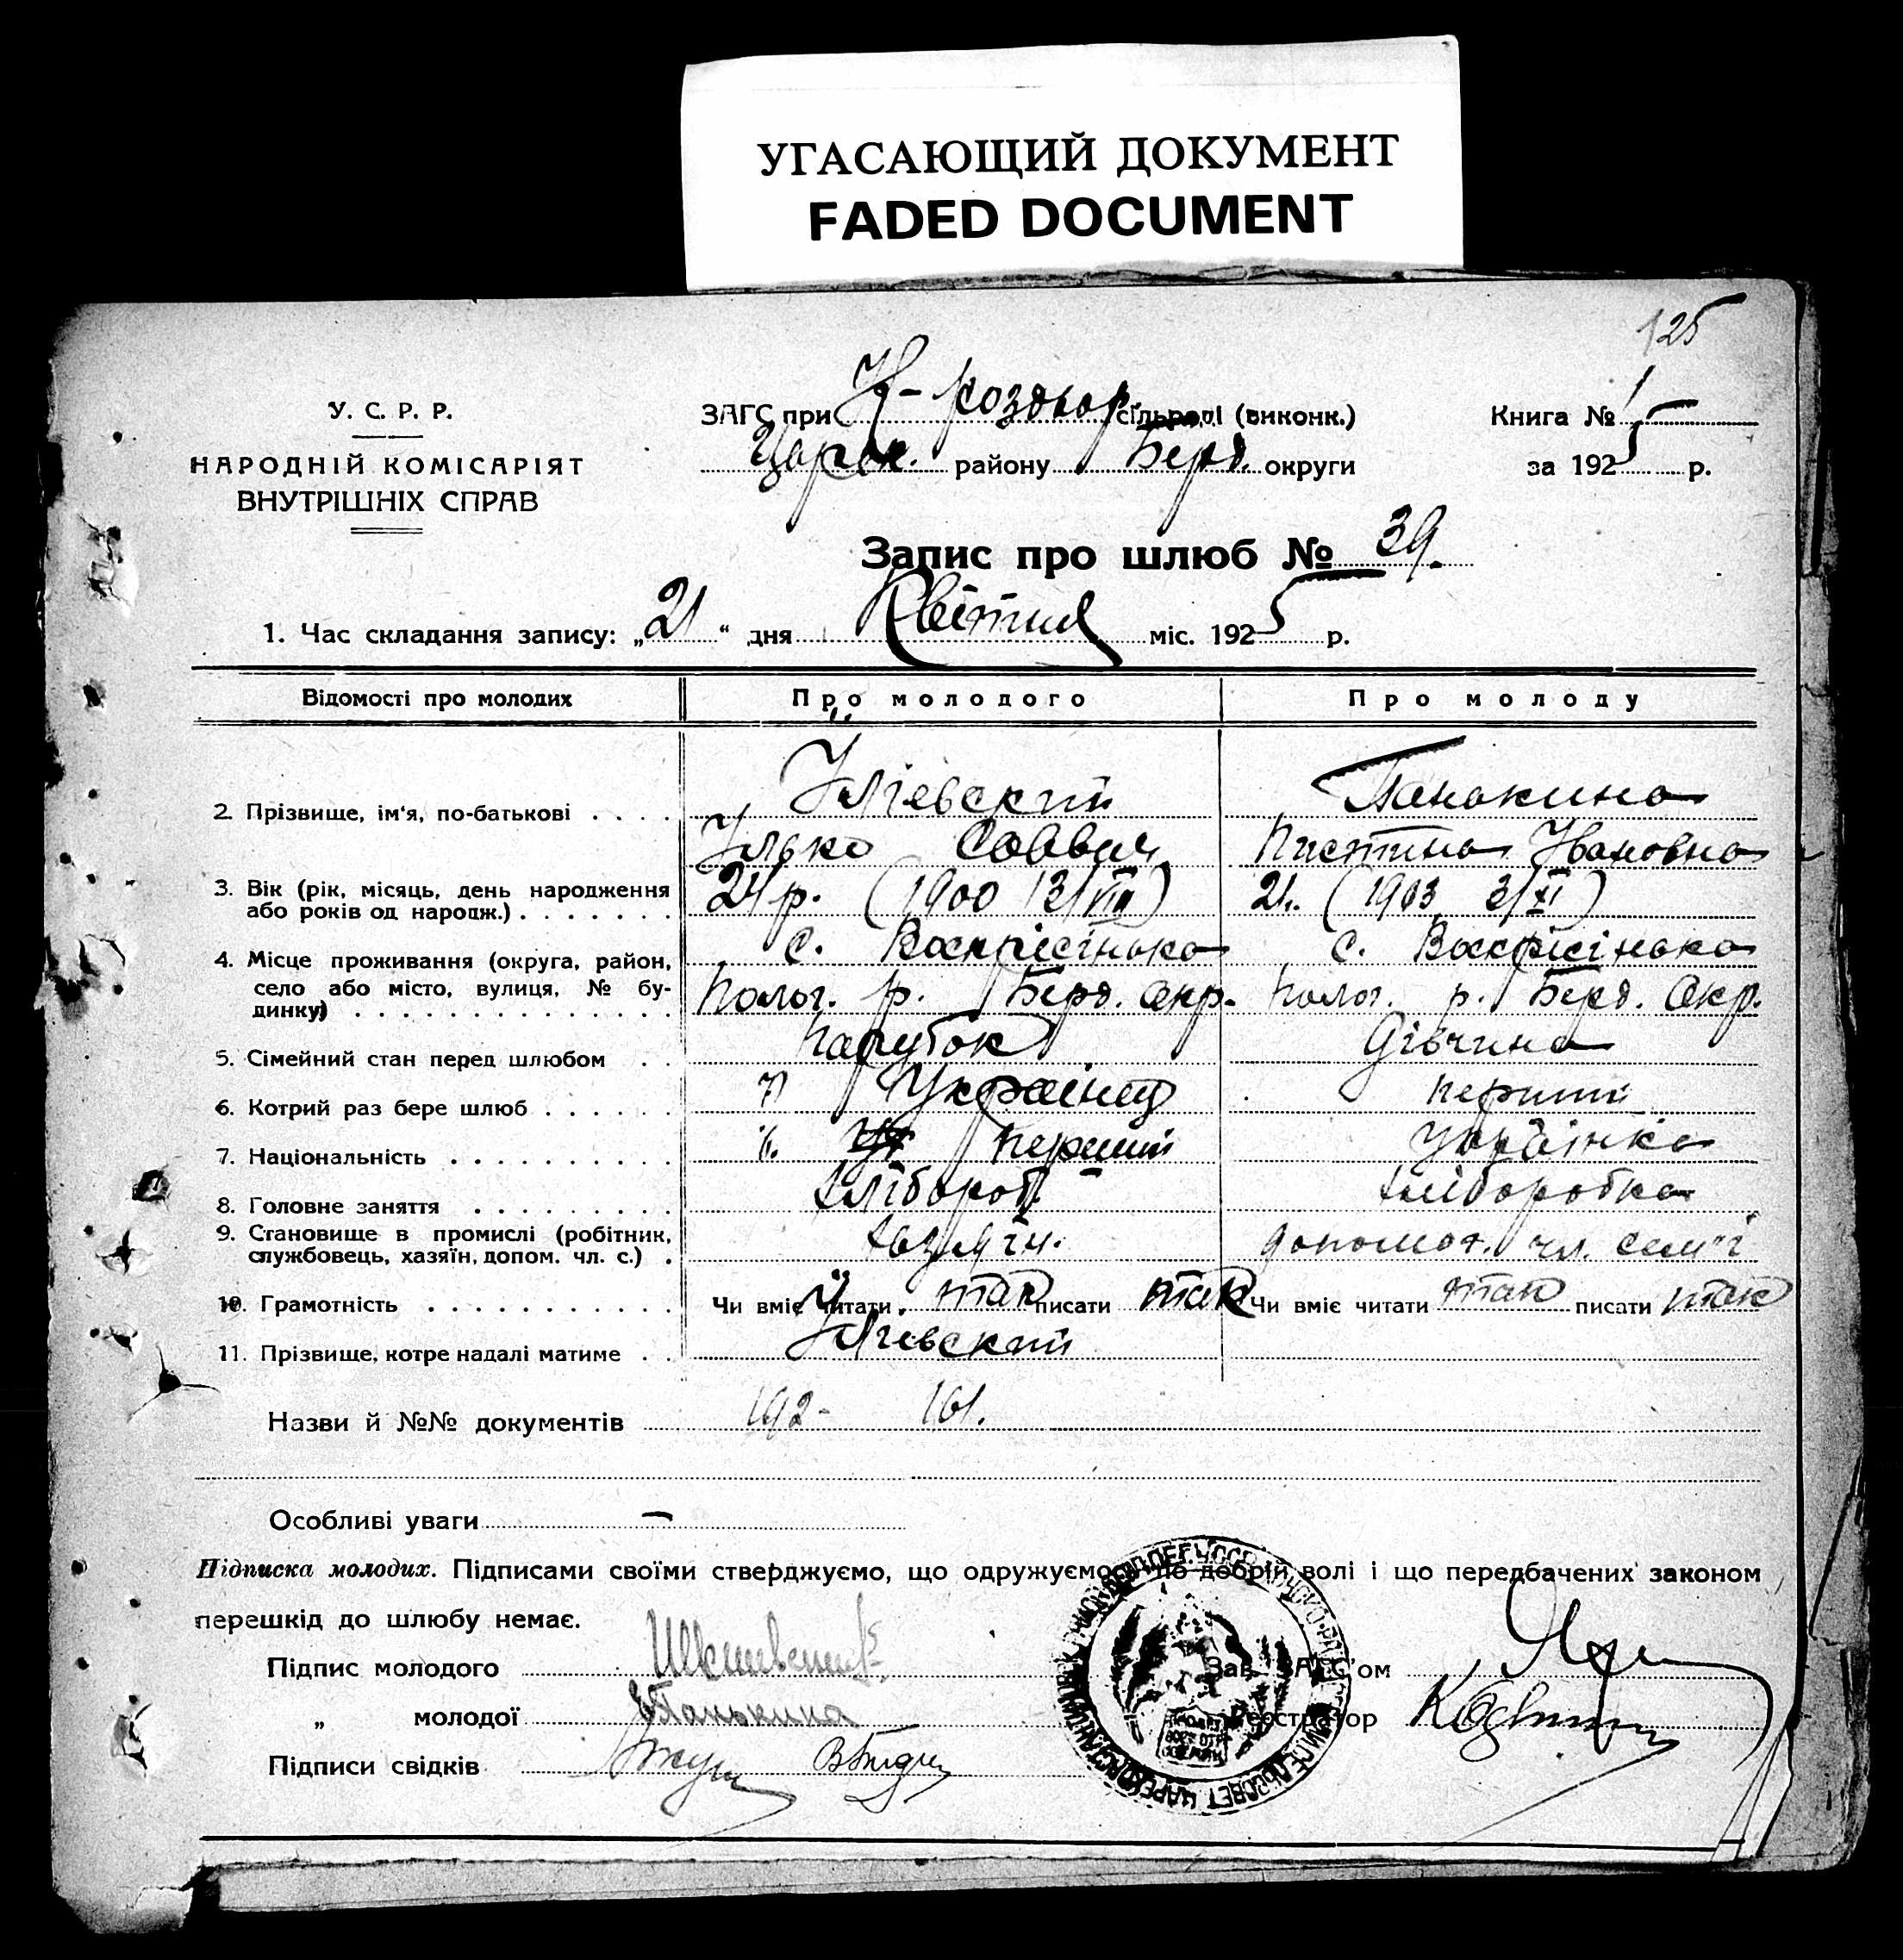 УГАСАЮЩИЙ ДОКУМЕНТ
FADED DOCUMENT
125
У. С. Р. Р.
НАРОДНІЙ КОМІСАРІЯТ
ВНУТРІШНІХ СПРАВ
ЗАГС при Н-роздор. сільраді (виконк.)
Царек. району Берд. округи
Книга № 1
за 1925 р.
Запис про шлюб № 39.
1. Час складання запису: „21“ дня Квітня міс. 1925 р.
Відомості про молодих Про молодого Про молоду
2. Прізвище, ім'я, по-батькові . . . . Панькина
Ілько Саввич Христина Івановна
3. Вік (рік, місяць, день народження 24 р. (1900 13/VIII) 21. (1903 3/XI)
або років од народж.) . . . . . . .
4. Місце проживання (округа, район, с. Воскрісінька с. Воскрісінька
село або місто, вулиця, № бу- Полог. р. Берд. Окр. Полог. р. Берд. Окр.
динку) . . . . . . . . . . . . . .
5. Сімейний стан перед шлюбом . . Парубок Дівчина
6. Котрий раз бере шлюб . . . . . . 7) Українец перший
7. Національність . . . . . . . . . . 6. перший українка
8. Головне заняття . . . . . . . . . хлібороб. хліборобка
9. Становище в промислі (робітник, хазяїн. допомог. чл. сем'ї
службовець, хазяїн, допом. чл. с.) .
10. Грамотність . . . . . . . . . . . Чи вміє читати так писати так Чи вміє читати так писати так
11. Прізвище, котре надалі матиме . .
Назви й №№ документів 192- 161.
Особливі уваги –
Підписка молодих. Підписами своїми стверджуємо, що одружуємось по добрій волі і що передбачених законом
перешкід до шлюбу немає.
Підпис молодого Зав. ЗАГС'ом
„ молодої Панькина Реєстратор
Підписи свідків